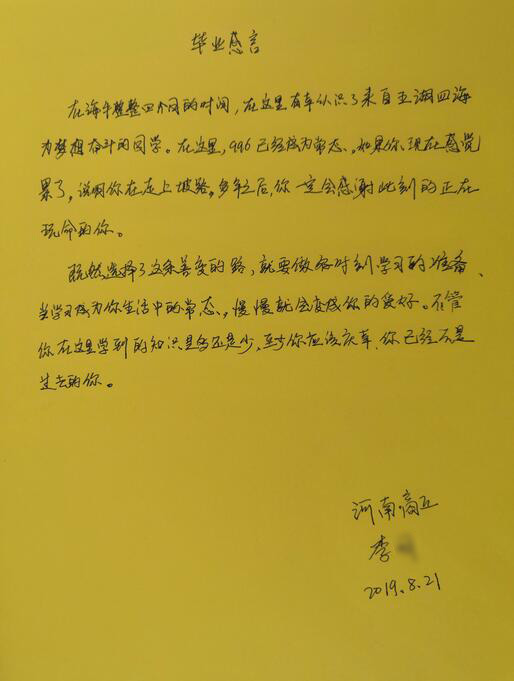 毕业感言
在海牛整整四个月的时间，在这里有幸认识了来自五湖四海
为梦想奋斗的同学。在这里，996已经成为常态、如果你、现在感觉
累了，说明你在走上坡路。多年之后，你一定会感谢此刻的正在
玩命的你。
既然选择了这条善变的路，就要做好时刻学习的准备、
当学习成为你生活中的常态、，慢慢就会变成你的爱好。不管
你在这里学到的知识是多还是少，至少你应该庆幸、你已经不是
过去的你。
河南商丘
李
2019.8.21